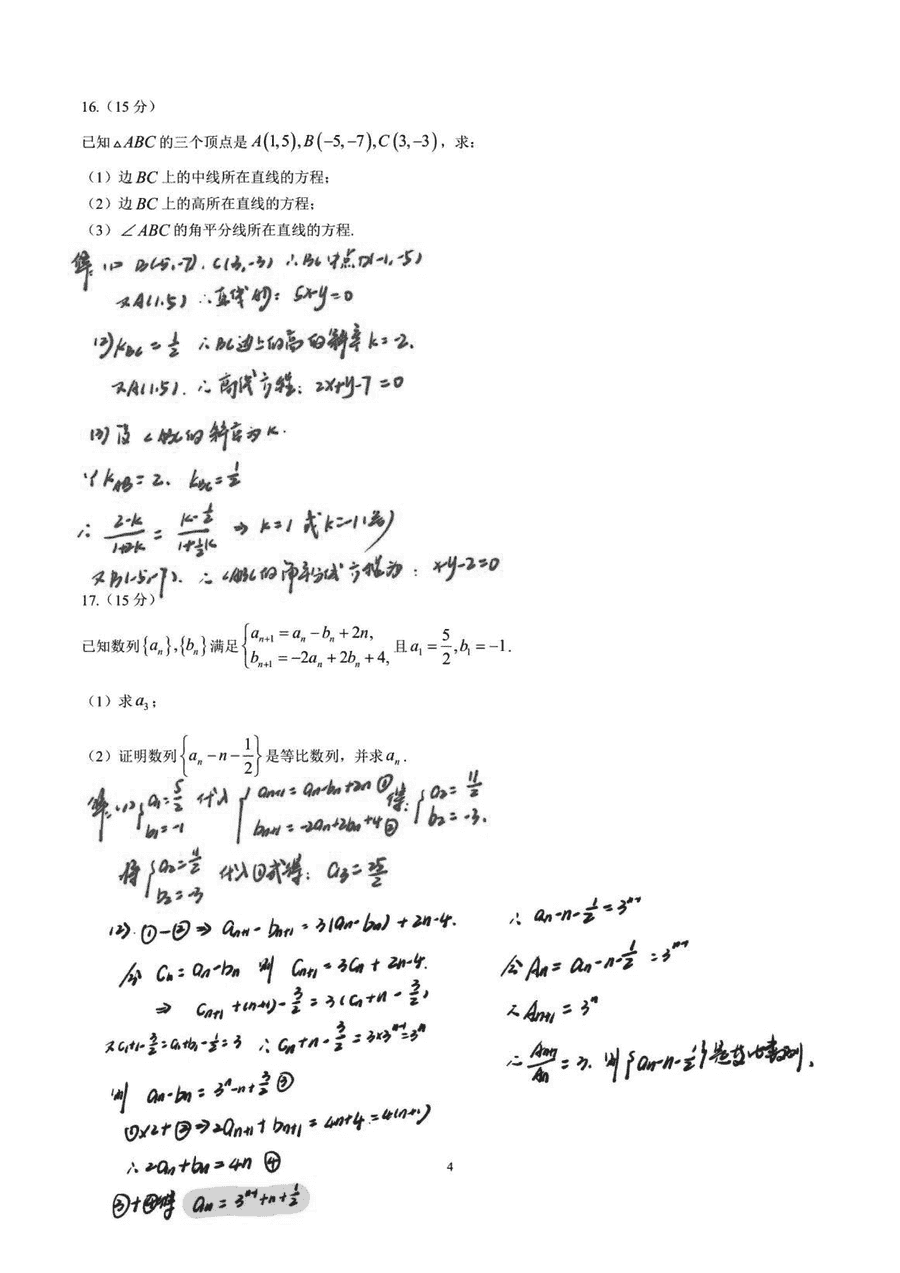 16.（15 分）
已知△ABC 的三个顶点是 A(1,5),B(−5,−7),C(3,−3)，求：
（1）边 BC 上的中线所在直线的方程；
（2）边 BC 上的高所在直线的方程；
（3）∠ABC 的角平分线所在直线的方程.
解：(1) B(-5,-7), C(3,-3) ∴BC中点D(-1,-5)
又A(1,5) ∴直线 : 5x-y=0
(2) k_{BC} = 1/2 ∴BC边上的高的斜率 k=-2.
又A(1,5). ∴高线方程: 2x+y-7=0
(3) 设∠ABC的 斜率为k.
∵ k_{AB}=2, k_{BC}=1/2
∴ (2-k)/(1+2k) = (k-1/2)/(1+1/2k) ⇒ k=1 或 k=-1(舍)
又B(-5,-7). ∴∠ABC的角平分线方程为: x-y-2=0
17.（15 分）
已知数列{a_n},{b_n}满足 { a_{n+1} = a_n − b_n + 2n, b_{n+1} = −2a_n + 2b_n + 4, 且 a_1 = 5/2, b_1 = −1.
（1）求 a_3；
（2）证明数列{a_n − n − 1/2}是等比数列，并求 a_n.
解：(1) { a_1=5/2 b_1=-1 代入 { a_{n+1} = a_n-b_n+2n ① b_{n+1} = -2a_n+2b_n+4 ② 得: { a_2=11/2 b_2=-3.
将 { a_2=11/2 b_2=-3 代入①式得: a_3=25/2
(2). ①-② ⇒ a_{n+1} - b_{n+1} = 3(a_n-b_n) + 2n-4.
令 C_n = a_n-b_n 则 C_{n+1} = 3C_n + 2n-4.
⇒ C_{n+1} + (n+1) - 3/2 = 3(C_n+n-3/2)
又C_1+1-3/2 = a_1-b_1-1/2 = 3 ∴ C_n+n-3/2 = 3×3^{n-1} = 3^n
则 a_n-b_n = 3^n-n+3/2 ③
①×2+② ⇒ 2a_{n+1} + b_{n+1} = 4n+4 = 4(n+1)
∴ 2a_n+b_n = 4n ④
③+④得 a_n = 3^{n-1}+n+1/2
∴ a_n-n-1/2 = 3^{n-1}
令 A_n = a_n-n-1/2 = 3^{n-1}
又 A_{n+1} = 3^n
∴ A_{n+1}/A_n = 3. 则 {a_n-n-1/2} 是等比数列.
4